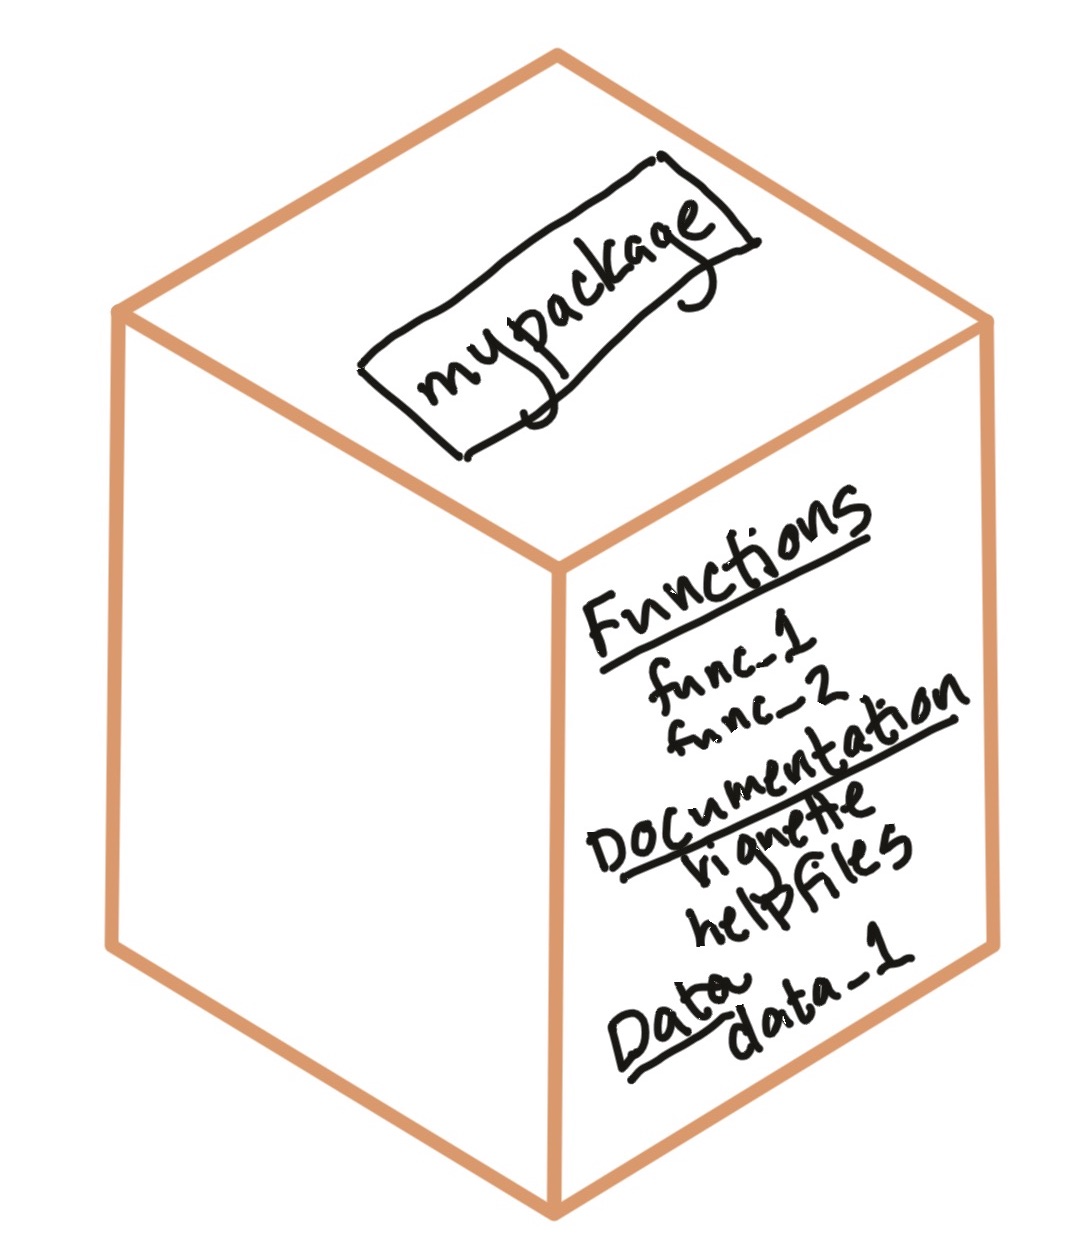 mypackage
Functions
func_1
func_2
Documentation
vignette
helpfiles
Data
data_1